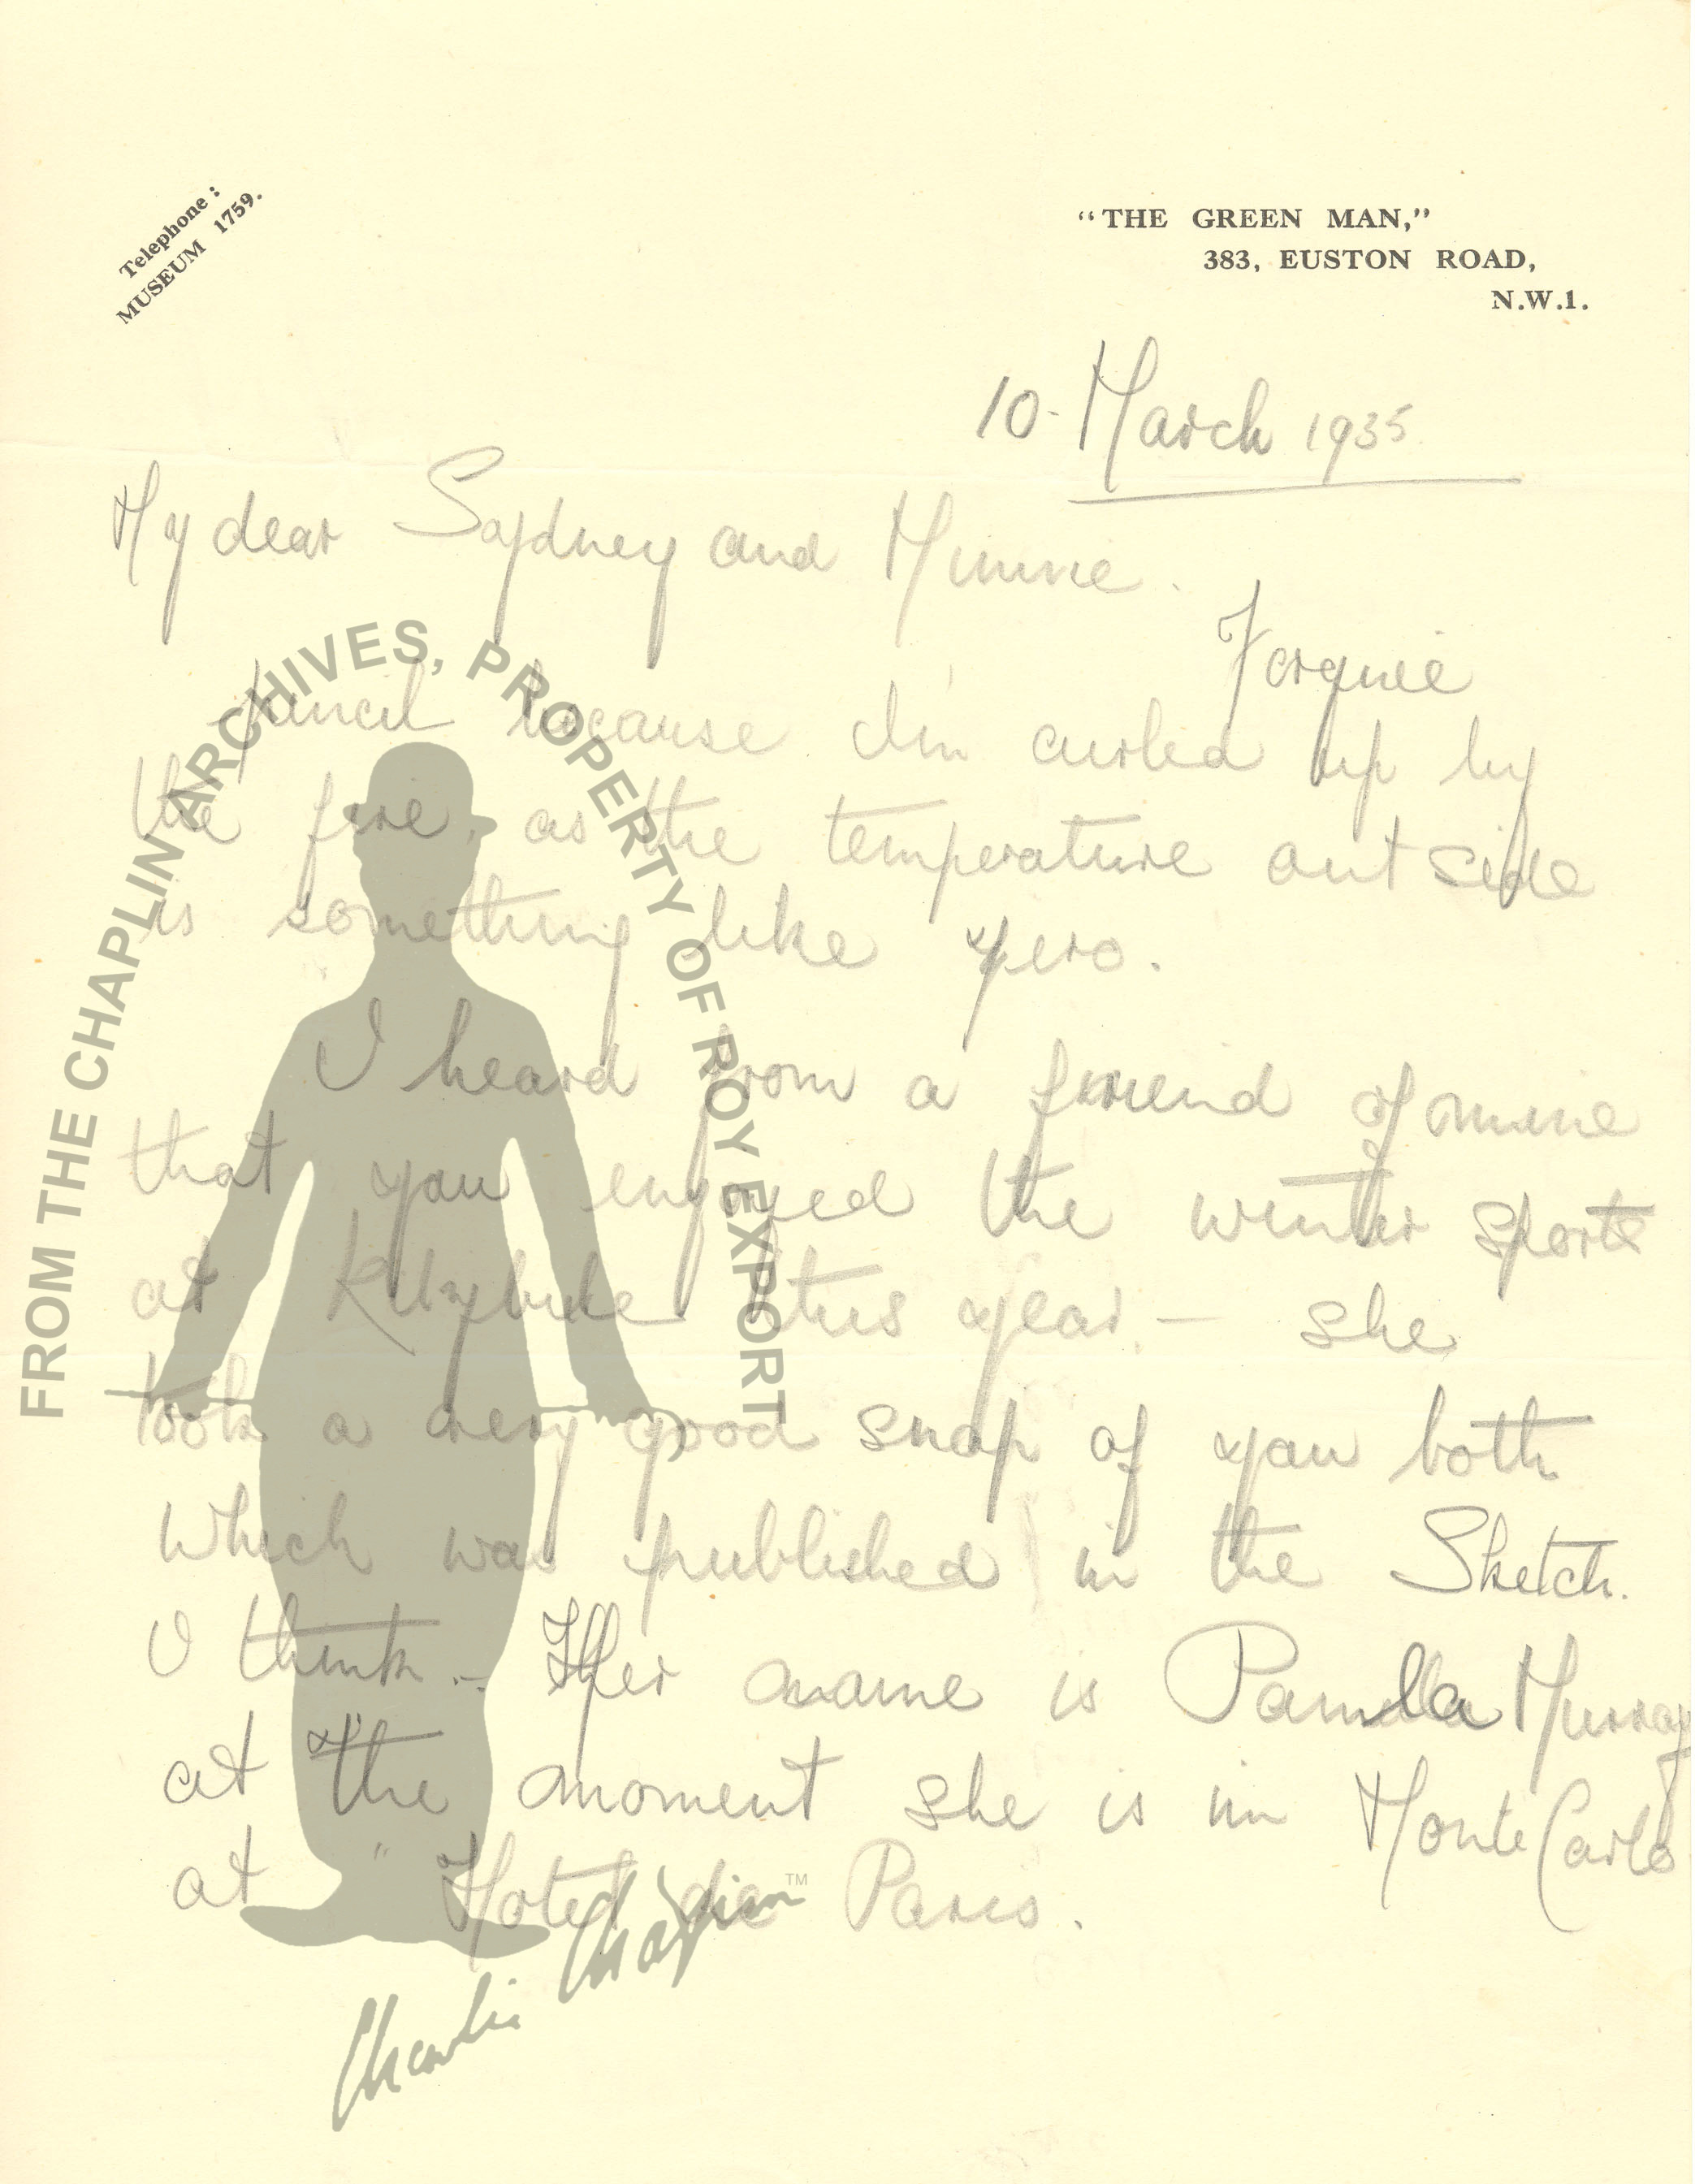 Telephone :
MUSEUM 1759.
"THE GREEN MAN,"
383, EUSTON ROAD,
N.W.1.
10 - March 1935
My dear Sydney and Minnie.
Forgive
pencil because I'm curled up by
the fire, as the temperature outside
is something like zero.
I heard from a friend of mine
that you enjoyed the winter sports
at Kitzbuhe this year - she
took a very good snap of you both
which was published in the Sketch.
I think - Her name is Pamela Murray
at the moment she is in Monte Carlo
at " Hotel de Paris.
FROM THE CHAPLIN ARCHIVES, PROPERTY OF ROY EXPORT
Charlie Chaplin TM